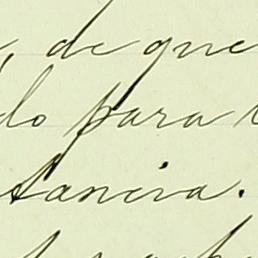 , de que
do para
tancia.